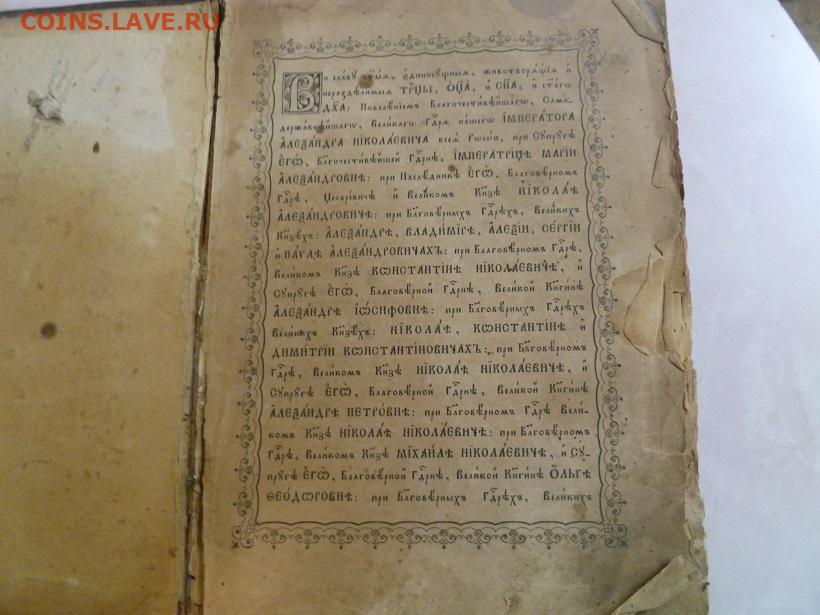 COINS.LAVE.RU
Во славу ст҃ыѧ, єдиносущныѧ, животворѧщіѧ и҆
нераздѣлимыѧ ТРЦ҃Ы, ОЦ҃А, и҆ СН҃А, и҆ ст҃агѡ
ДХ҃А: Повелѣніемъ Благочестивѣйшагѡ, Само-
державнѣйшагѡ, Великагѡ Гдⷭ҇рѧ нашегѡ І҆МПЕРАТОРА
А҆ЛЕѮА́НДРА НІКОЛА́ЕВИЧА всеѧ̀ Рѡссіи, при Супругѣ
Є҆ГѠ̀, Благочестивѣйшей Гдⷭ҇рнѣ, І҆МПЕРАТРІЦѢ МАРІИ
А҆ЛЕѮА́НДРОВНѢ: при Наслѣдникѣ Є҆ГѠ̀, Благовѣрном
Гдⷭ҇рѣ, Цесаревичѣ и҆ Великомъ Кнѧ҃зѣ НІКОЛА́Ѣ
А҆ЛЕѮА́НДРОВИЧѢ: при Благовѣрныхъ Гдⷭ҇рѣхъ, Великихъ
Кнѧ҃зѣхъ: А҆ЛЕѮА́НДРѢ, ВЛАДИ́МІРѢ, А҆ЛЕѮІИ, СЕ́РГІИ
и҆ ПА́VЛѢ А҆ЛЕѮА́НДРОВИЧАХЪ: при Благовѣрномъ Гдⷭ҇рѣ,
Великомъ Кнѧ҃зѣ КѠНСТАНТІ́НѢ НІКОЛА́ЕВИЧѢ, и҆
Супругѣ Є҆ГѠ̀, Благовѣрной Гдⷭ҇рнѣ, Великой Кнѧги́нѣ
А҆ЛЕѮА́НДРѢ І҆Ѡ́СИФОВНѢ: при Благовѣрныхъ Гдⷭ҇рѣхъ
Великихъ Кнѧ҃зѣхъ: НІКОЛА́Ѣ, КѠНСТАНТІ́НѢ и҆
ДИМИ́ТРІИ КѠНСТАНТІ́НОВИЧАХЪ: при Благовѣрномъ
Гдⷭ҇рѣ, Великомъ Кнѧ҃зѣ НІКОЛА́Ѣ НІКОЛА́ЕВИЧѢ, и҆
Супругѣ Є҆ГѠ̀, Благовѣрной Гдⷭ҇рнѣ, Великой Кнѧги́нѣ
А҆ЛЕѮА́НДРѢ ПЕТРО́ВНѢ: при Благовѣрномъ Гдⷭ҇рѣ Вели-
комъ Кнѧ҃зѣ НІКОЛА́Ѣ НІКОЛА́ЕВИЧѢ: при Благовѣрномъ
Гдⷭ҇рѣ, Великомъ Кнѧ҃зѣ МІХАИ́ЛѢ НІКОЛА́ЕВИЧѢ, и҆ Су-
пругѣ Є҆ГѠ̀, Благовѣрной Гдⷭ҇рнѣ, Великой Кнѧги́нѣ О҆́ЛЬГѢ
ѲЕО́ДѠРОВНѢ: при Благовѣрныхъ Гдⷭ҇рѣхъ, Великихъ